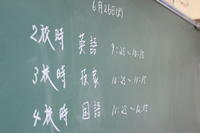 6月26日(火)
2校時 英語 9:25~10:15
3校時 技家 10:25~11:15
4校時 国語 11:25~12:15